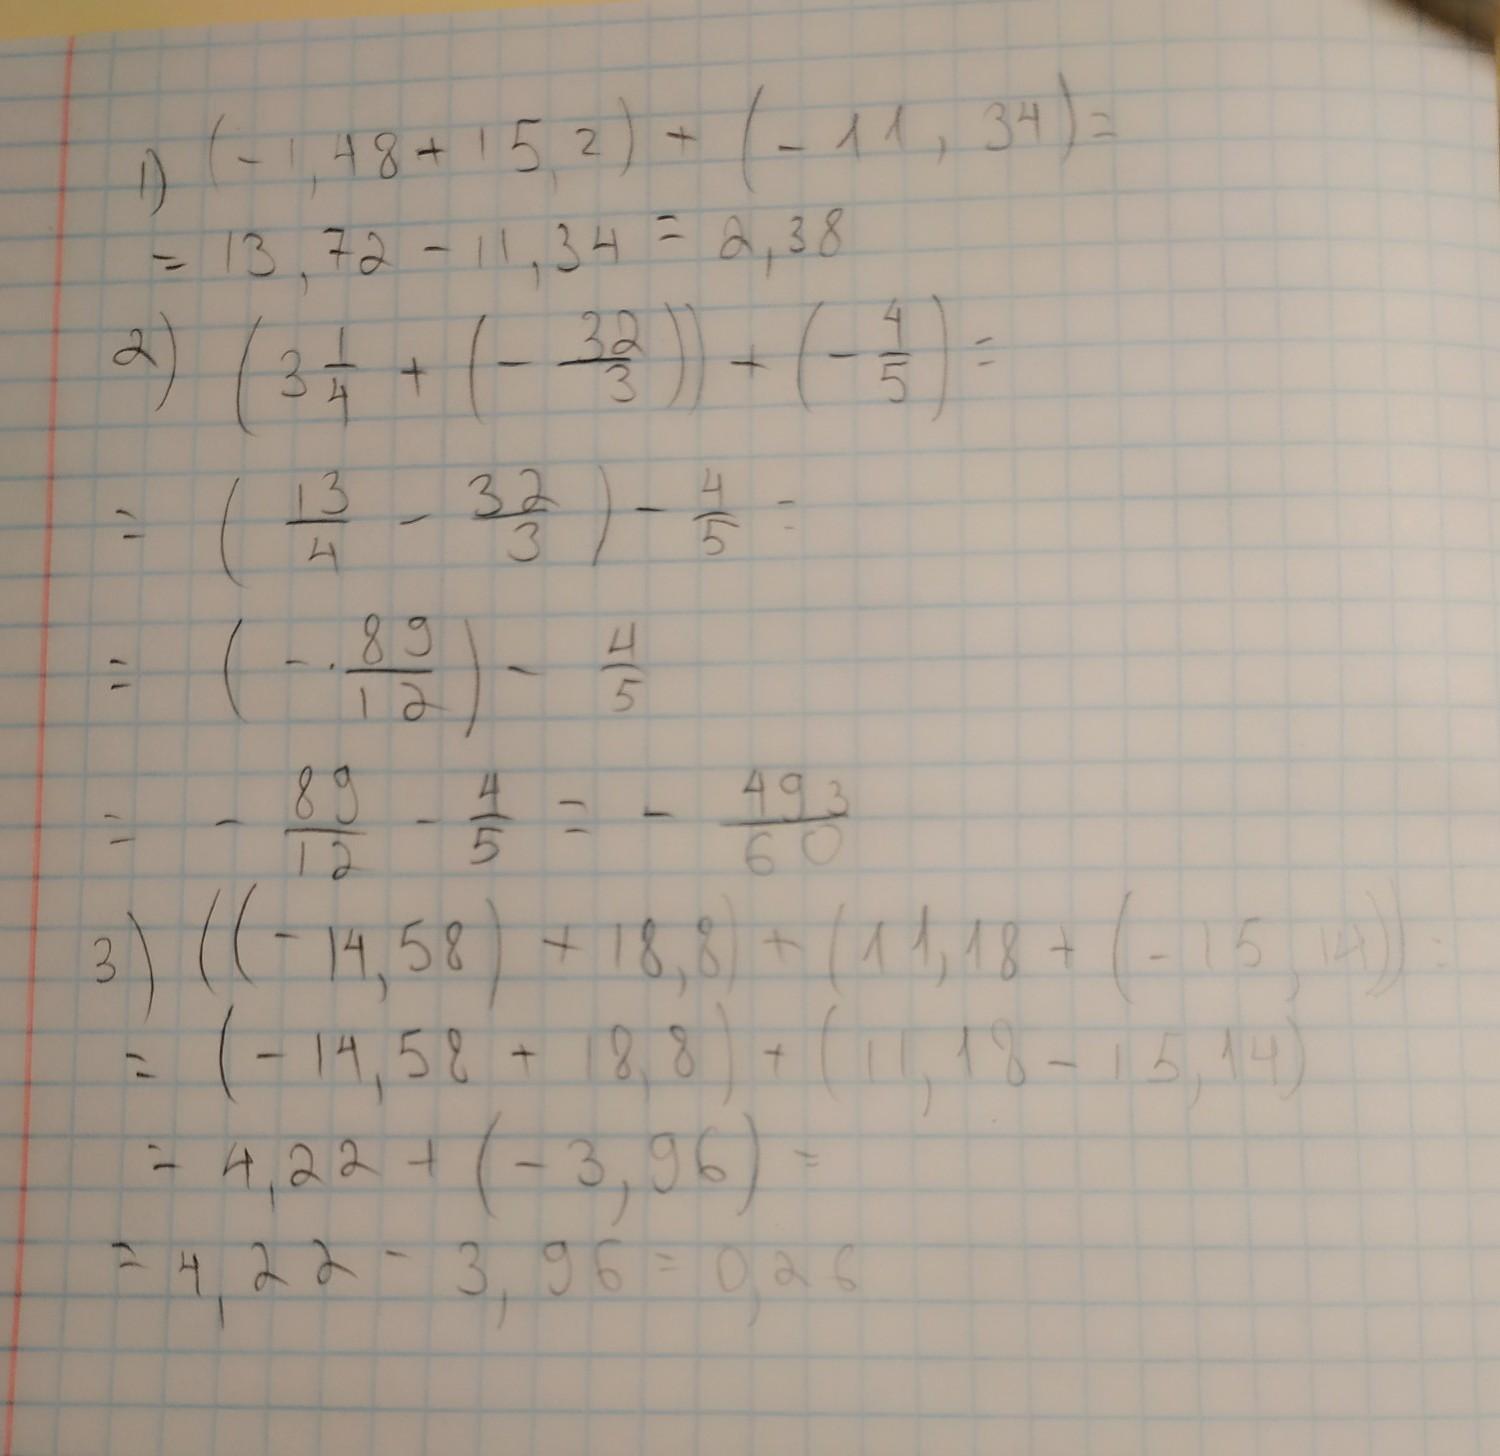 1) (-1,48+15,2)+(-11,34)=
=13,72-11,34=2,38
2) (3 1/4 + (- 32/3)) + (- 4/5) =
= (13/4 - 32/3) - 4/5 =
= (-. 89/12) - 4/5
= - 89/12 - 4/5 = - 493/60
3) ((-14,58)+18,8)+(11,18+(-15,14))=
= (-14,58+18,8)+(11,18-15,14)
= 4,22+(-3,96)=
= 4,22-3,96=0,26